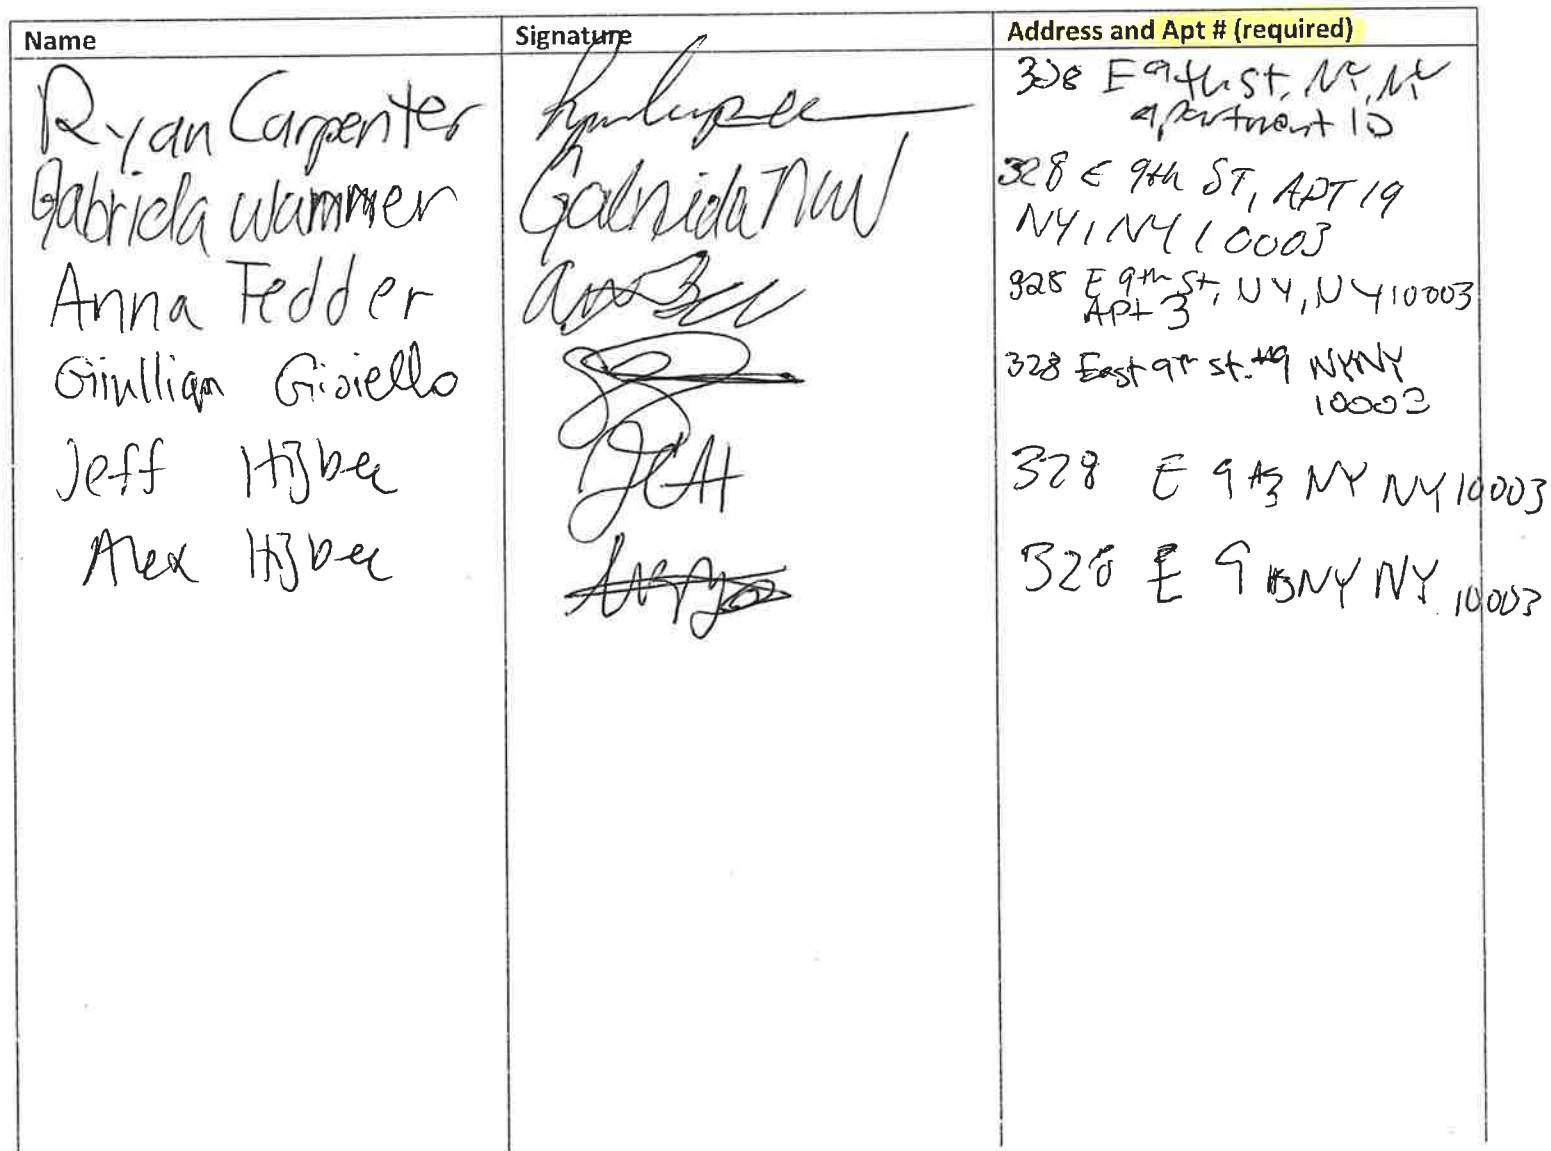 Name Signature Address and Apt # (required)
Ryan Carpenter 328 E 9th St, NY, NY
apartment 10
Gabriela Wammer 328 E 9th ST, APT 19
NY, NY 10003
Anna Fedder 328 E 9th St, NY, NY 10003
Apt 3
Giullian Gioiello 328 East 9th st. #9 NY NY
10003
Jeff 328 E 9 #3 NY NY 10003
Alex 328 E 9 #3 NY NY 10003